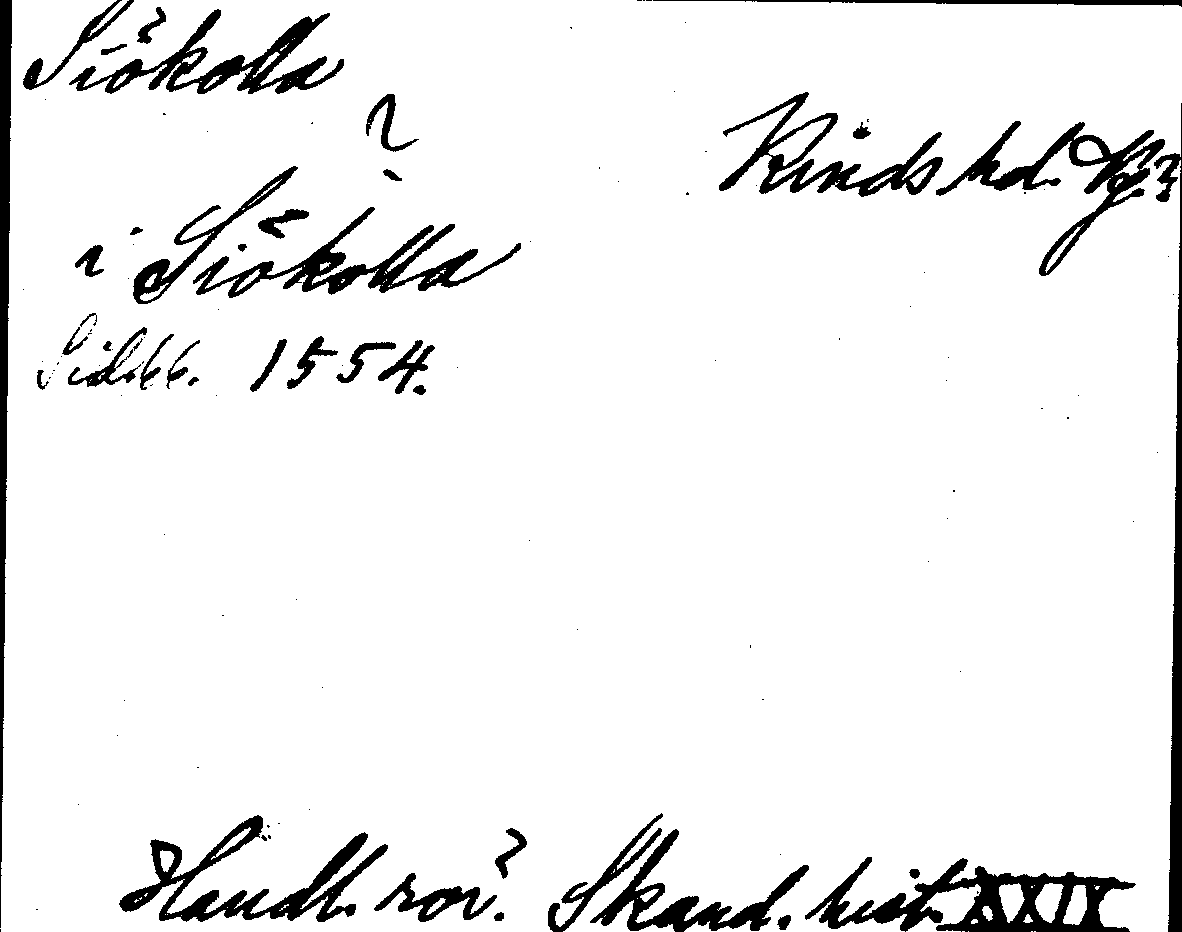 Siökolla
?
Kinds hd. Vg.
i Siökolla
Sid. 66. 1554.
Handl. rör. Skand. hist. XXIX